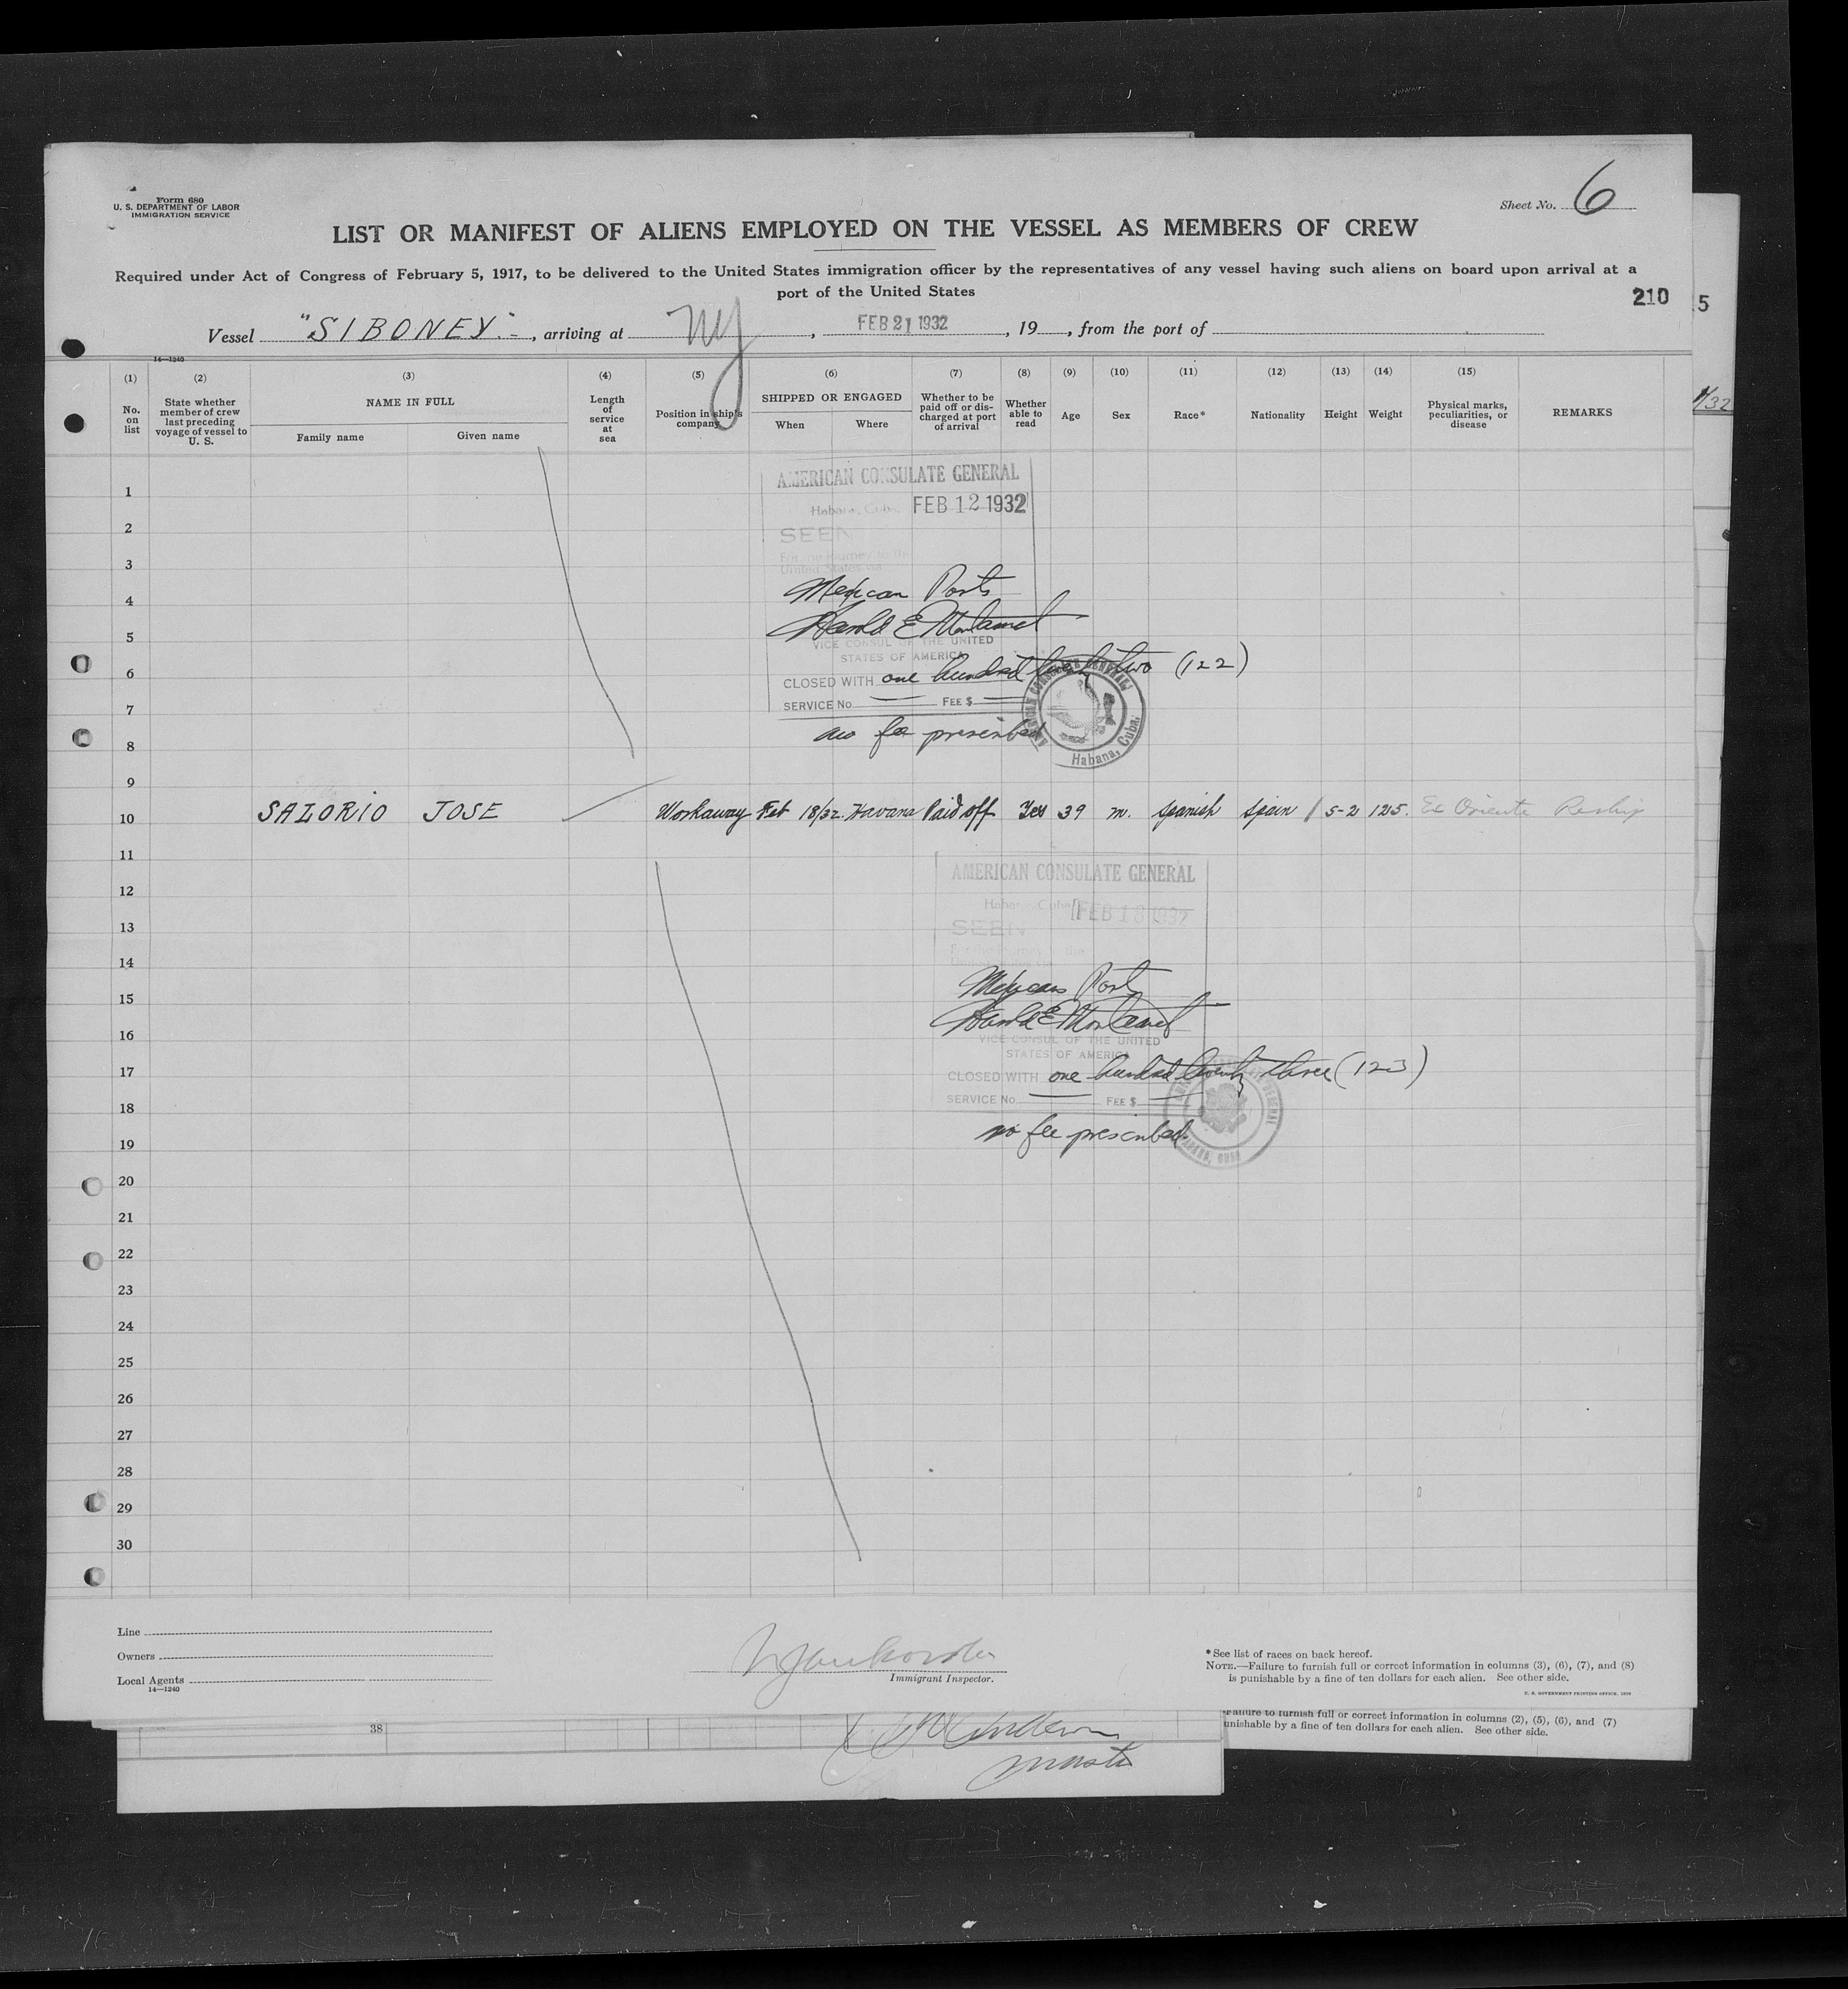 Form 680
U. S. DEPARTMENT OF LABOR
IMMIGRATION SERVICE
Sheet No. 6
LIST OR MANIFEST OF ALIENS EMPLOYED ON THE VESSEL AS MEMBERS OF CREW
Required under Act of Congress of February 5, 1917, to be delivered to the United States immigration officer by the representatives of any vessel having such aliens on board upon arrival at a
port of the United States
210
5
Vessel "SIBONEY", arriving at NY, FEB 21 1932, 19 , from the port of
14—1240
(1) (2) (3) (4) (5) (6) (7) (8) (9) (10) (11) (12) (13) (14) (15)
No. on list
State whether member of crew last preceding voyage of vessel to U. S.
NAME IN FULL
Family name Given name
Length of service at sea
Position in ship's company
SHIPPED OR ENGAGED
When Where
Whether to be paid off or discharged at port of arrival
Whether able to read
Age
Sex
Race*
Nationality
Height
Weight
Physical marks, peculiarities, or disease
REMARKS
1/32
1
2
3
4
5
6
7
8
9
AMERICAN CONSULATE GENERAL
Habana, Cuba. FEB 12 1932
SEEN
For the journey to the
United States via
Mexican Ports
Harold E
VICE CONSUL OF THE UNITED
STATES OF AMERICA
CLOSED WITH one hundred twenty two (122)
SERVICE No. FEE $
no fee prescribed
AMERICAN CONSULATE GENERAL
Habana, Cuba.
10 SALORIO JOSE Workaway Feb 18/32. Havana Paid off Yes 39 m. Spanish Spain 5-2 125. Ex Oriente Reship
11
12
13
14
15
16
17
18
19
20
21
22
23
24
25
26
27
28
29
30
AMERICAN CONSULATE GENERAL
Habana, Cuba FEB 18 1932
SEEN
For the journey to the
Mexican Ports
Harold E
VICE CONSUL OF THE UNITED
STATES OF AMERICA
CLOSED WITH one hundred twenty three (123)
SERVICE No. FEE $
no fee prescribed.
HABANA, CUBA
Line
Owners
Local Agents
14—1240
Immigrant Inspector.
*See list of races on back hereof.
NOTE.—Failure to furnish full or correct information in columns (3), (6), (7), and (8)
is punishable by a fine of ten dollars for each alien. See other side.
U. S. GOVERNMENT PRINTING OFFICE
38
Failure to furnish full or correct information in columns (2), (5), (6), and (7)
unishable by a fine of ten dollars for each alien. See other side.
master